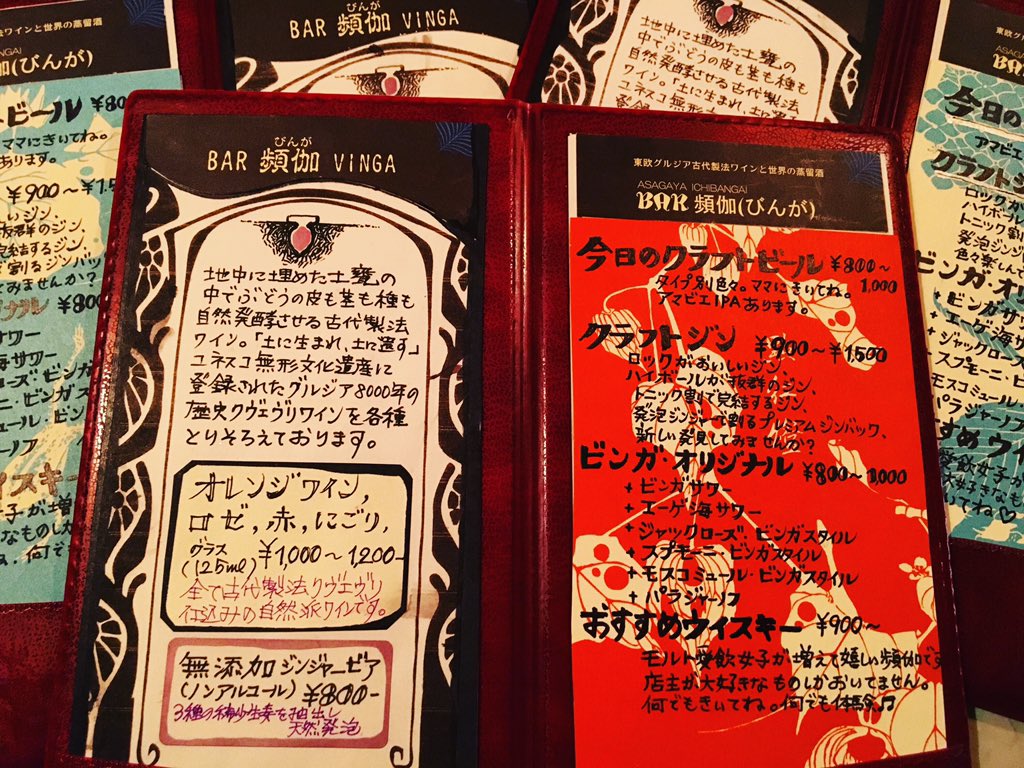 びんが
BAR 頻伽 VINGA
地中に埋めた土甕の
中でぶどうの皮も茎も種も
自然発酵させる古代製法
ワイン。「土に生まれ、土に還す」
ユネスコ無形文化遺産に
登録されたグルジア8000年の
歴史クヴェヴリワインを各種
とりそろえております。
オレンジワイン,
ロゼ,赤,にごり,
グラス
(125ml) ¥1,000〜1,200-
全て古代製法クヴェヴリ
仕込みの自然派ワインです。
無添加ジンジャービア
(ノンアルコール) ¥800-
3種の稀少生姜を抽出し
天然発泡
東欧グルジア古代製法ワインと世界の蒸留酒
ASAGAYA ICHIBANGAI
BAR 頻伽(びんが)
今日のクラフトビール ¥800〜
1,000
タイプ別色々。ママにきいてね。
アマビエIPAあります。
クラフトジン ¥900〜¥1,500
ロックがおいしいジン、
ハイボールが抜群のジン、
トニック割で完結するジン、
発泡ジンジャーで割るプレミアムジンバック、
新しい発見してみませんか?
ビンガ・オリジナル ¥800〜1,000
+ ビンガサワー
+ エーゲ海サワー
+ ジャックローズ・ビンガスタイル
+ スプモーニ・ビンガスタイル
+ モスコミュール・ビンガスタイル
+ パラジャーノフ
おすすめウィスキー ¥900〜
モルト愛飲女子が増えて嬉しい頻伽です
店主が大好きなものしかおいてません。
何でもきいてね。何でも体験♫
びんが
BAR 頻伽 VINGA
地中に埋めた土甕の
中でぶどうの皮も茎も種も
自然発酵させる古代製法
ワイン。「土に生まれ、土に還す」
ユネスコ無形文化